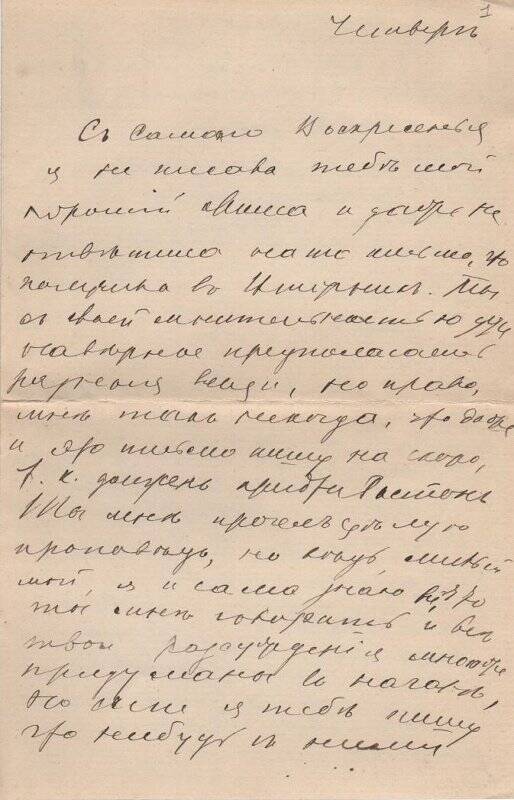 1
Четверг
Съ самаго Воскресенья
я не писала тебѣ мой
хорошій Миша и даже не
отвѣтила на то письмо, что
получила во Вторникъ. Ты
съ своей мнительностью уже
навѣрное предполагаешь
разныя вещи, но право,
мнѣ такъ некогда, что даже
и это письмо пишу на скоро,
т. к. долженъ придти
Ты мнѣ прочелъ цѣлую
проповѣдь, но вѣдь, милый
мой, я и сама знаю все, что
ты мнѣ говоришь и всѣ
твои разсужденія мною же
придуманы въ началѣ,
но если я тебѣ пишу
что нибудь